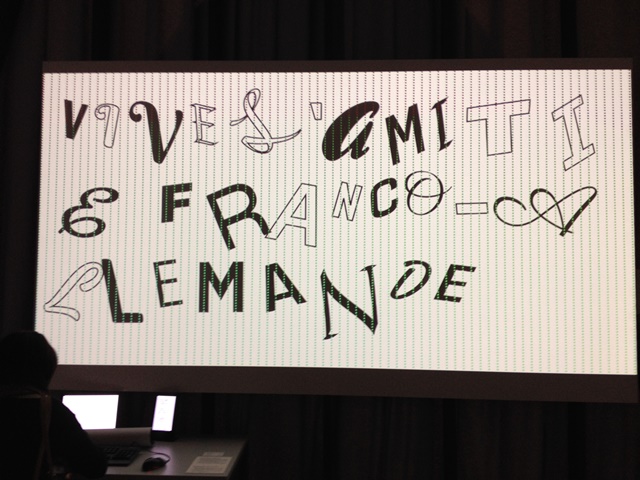 VIVE L'AMITI
E FRANCO-A
LLEMANDE